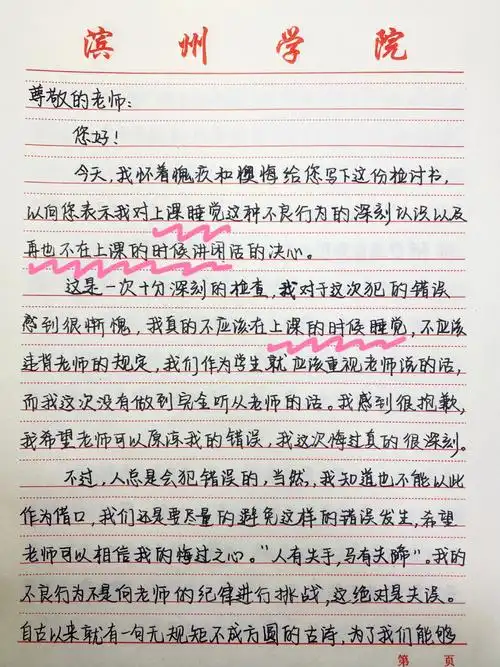 滨州学院
尊敬的老师：
您好！
今天，我怀着愧疚和懊悔给您写下这份检讨书，
以向您表示我对上课睡觉这种不良行为的深刻认识以及
再也不在上课的时候讲闭话的决心。
这是一次十分深刻的检查，我对于这次犯的错误
感到很惭愧，我真的不应该在上课的时候睡觉，不应该
违背老师的规定，我们作为学生就应该重视老师说的话，
而我这次没有做到完全听从老师的话。我感到很抱歉，
我希望老师可以原谅我的错误，我这次悔过真的很深刻。
不过，人总是会犯错误的，当然，我知道也不能以此
作为借口，我们还是要尽量的避免这样的错误发生，希望
老师可以相信我的悔过之心。“人有失手，马有失蹄”。我的
不良行为不是向老师的纪律进行挑战，这绝对是失误。
自古以来就有一句无规矩不成方圆的古诗，为了我们能够
第 页